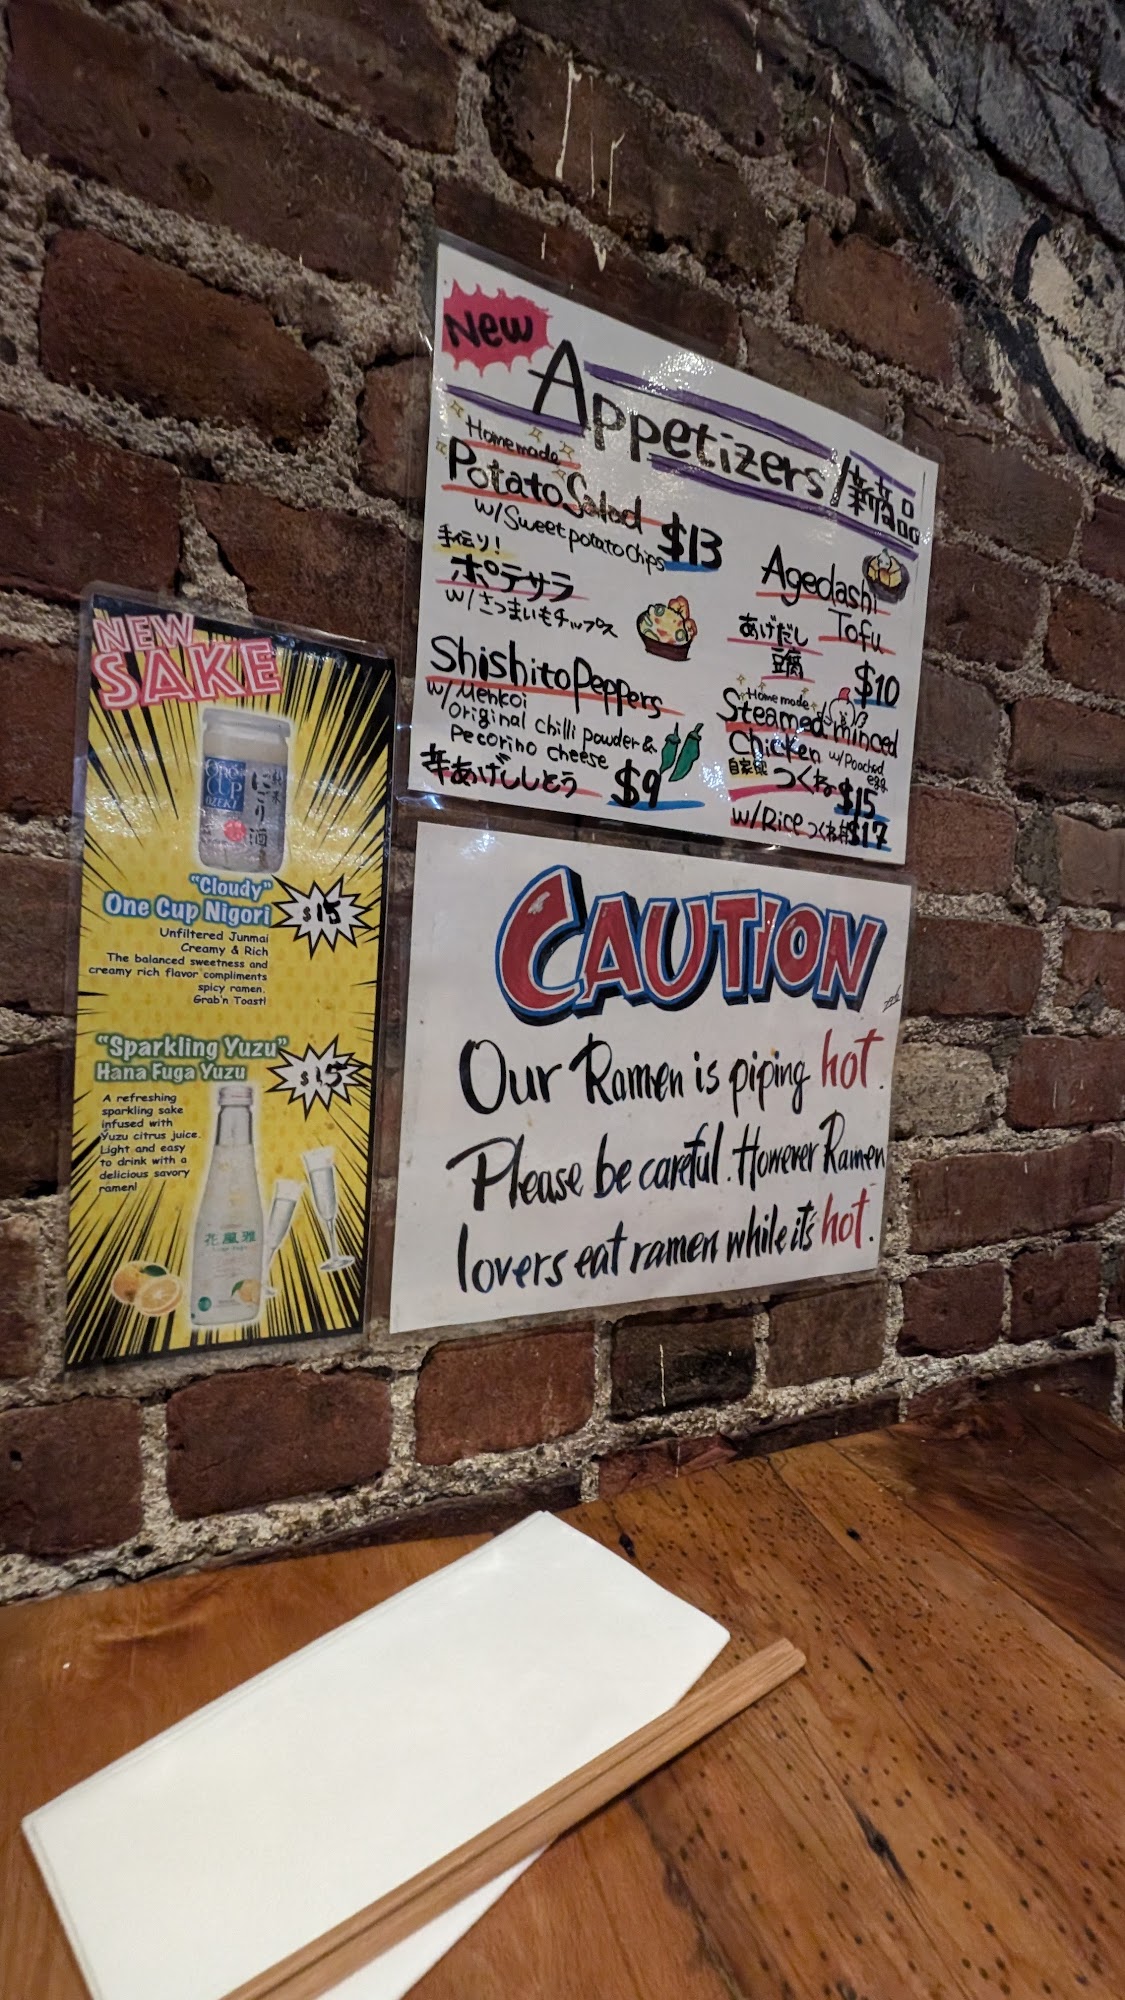 New
Appetizers/新商品
Homemade
Potato Salad
w/ Sweet potato chips $13
手伝り!
ポテサラ
w/ さつまいもチップス
Shishito Peppers
w/ Menkoi
Original chilli powder &
Pecorino cheese
辛あげししとう $9
Agedashi
Tofu
あげだし
豆腐
$10
Homemade
Steamed minced
Chicken w/ Poached
egg
自家製 つくね $15
w/ Rice つくね丼 $17
NEW
SAKE
One
CUP
OZEKI
にごり酒
"Cloudy"
One Cup Nigori
$15
Unfiltered Junmai
Creamy & Rich
The balanced sweetness and
creamy rich flavor compliments
spicy ramen.
Grab'n Toast!
"Sparkling Yuzu"
Hana Fuga Yuzu
$15
A refreshing
sparkling sake
infused with
Yuzu citrus juice.
Light and easy
to drink with a
delicious savory
ramen!
花風雅
CAUTION
Our Ramen is piping hot.
Please be careful. However Ramen
lovers eat ramen while it's hot.